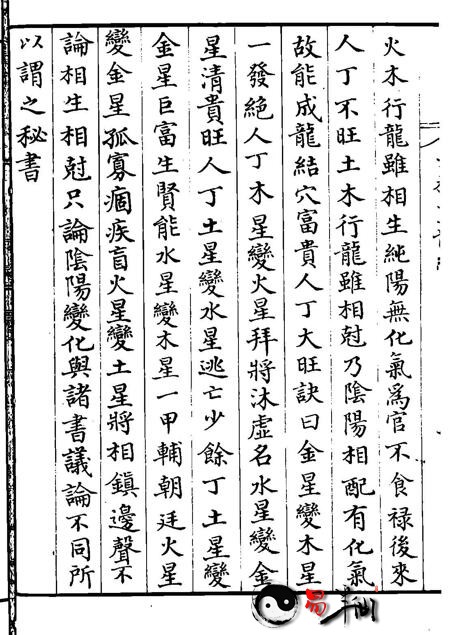 火木行龍雖相生純陽無化氣爲官不食禄後來
人丁不旺土木行龍雖相尅乃隂陽相配有化氣
故能成龍結穴富貴人丁大旺訣曰金星變木星
一發絕人丁木星變火星拜將沐虛名水星變金
星清貴旺人丁土星變水星逃亡少餘丁土星變
金星巨富生賢能水星變木星一甲輔朝廷火星
變金星孤寡痼疾盲火星變土星將相鎮邊聲不
論相生相尅只論隂陽變化與諸書議論不同所
以謂之秘書
易